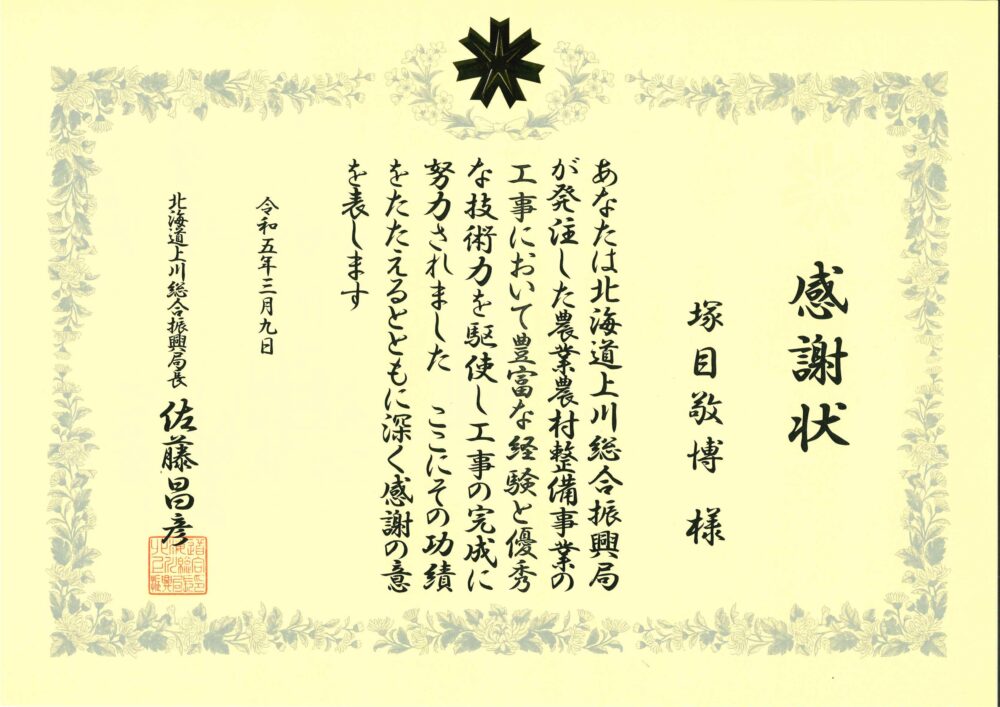 感謝状
塚目敬博 様
あなたは北海道上川総合振興局
が発注した農業農村整備事業の
工事において豊富な経験と優秀
な技術力を駆使し工事の完成に
努力されました ここにその功績
をたたえるとともに深く感謝の意
を表します
令和五年三月九日
北海道上川総合振興局長 佐藤昌彦